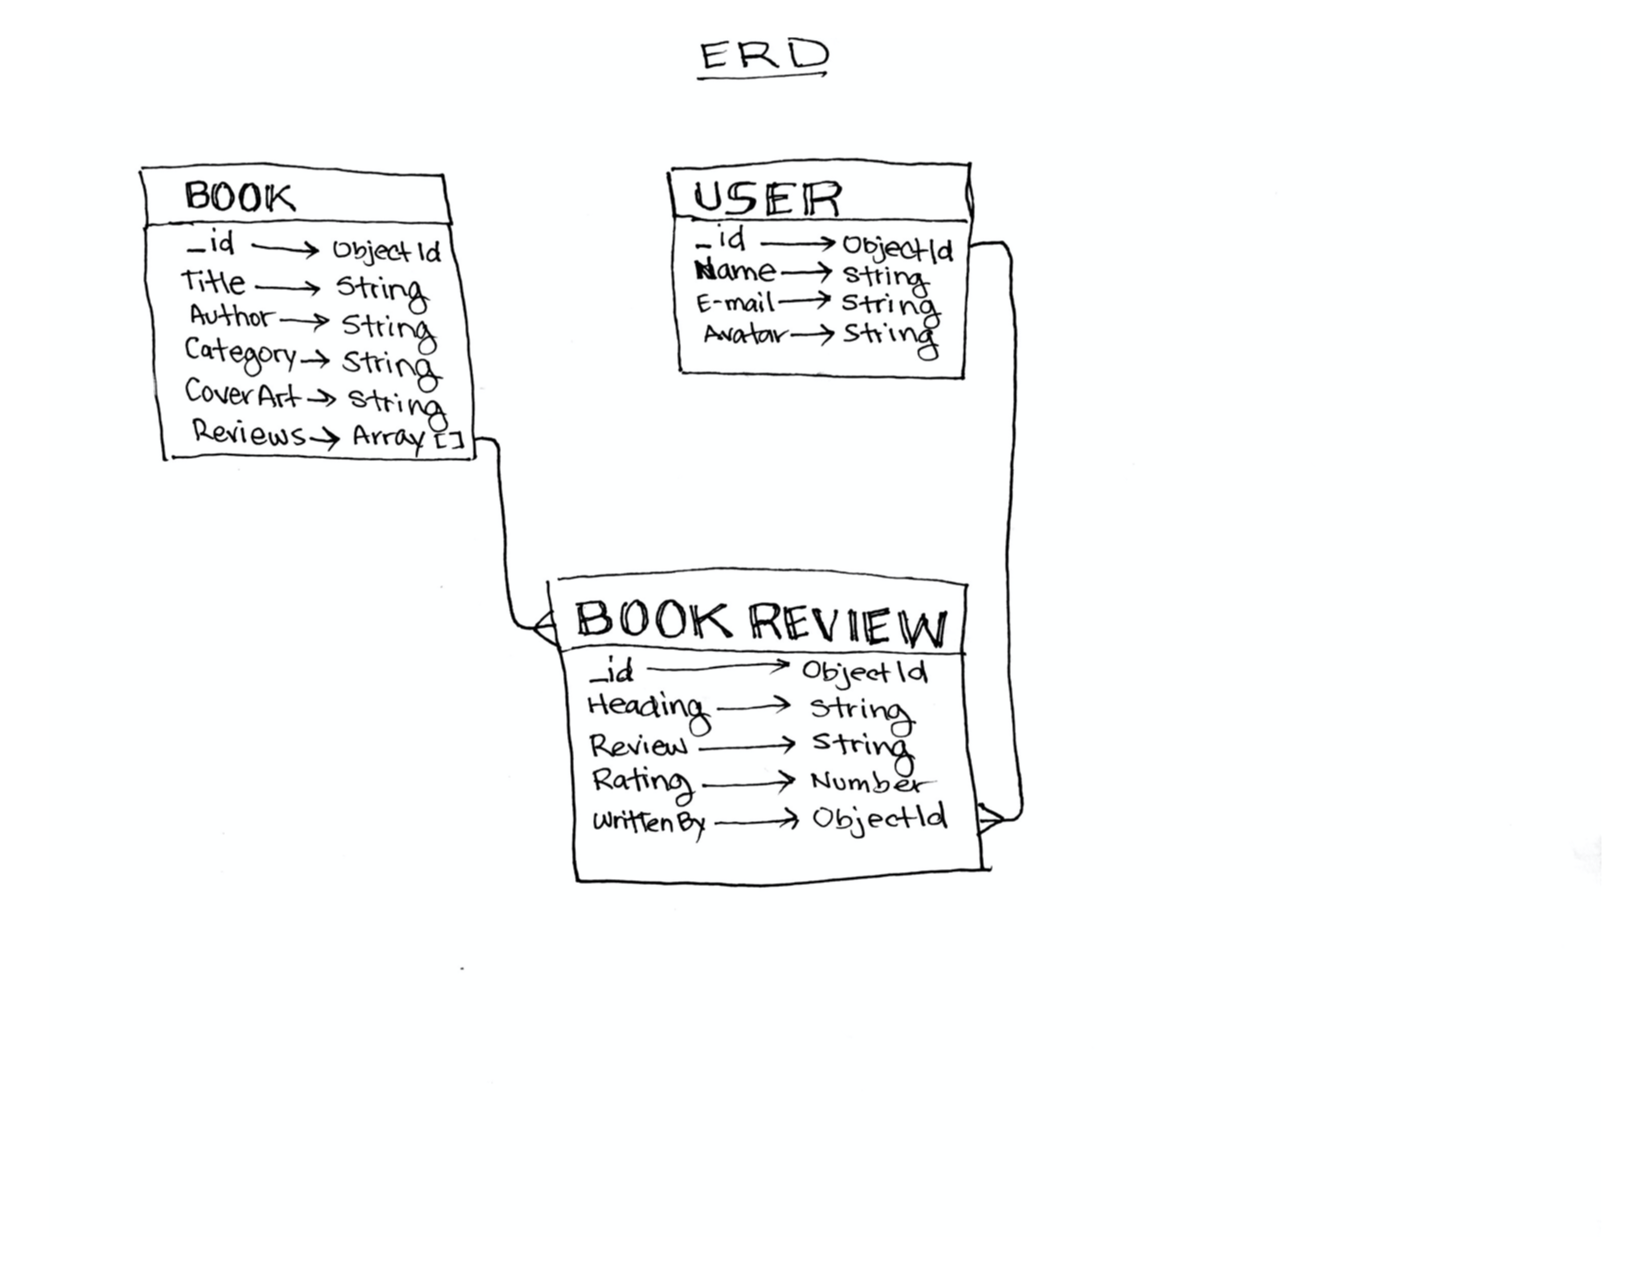 ERD
BOOK
_id → ObjectId
Title → String
Author → String
Category → String
CoverArt → String
Reviews → Array []
USER
_id → ObjectId
Name → String
E-mail → String
Avatar → String
BOOK REVIEW
_id → ObjectId
Heading → String
Review → String
Rating → Number
WrittenBy → ObjectId